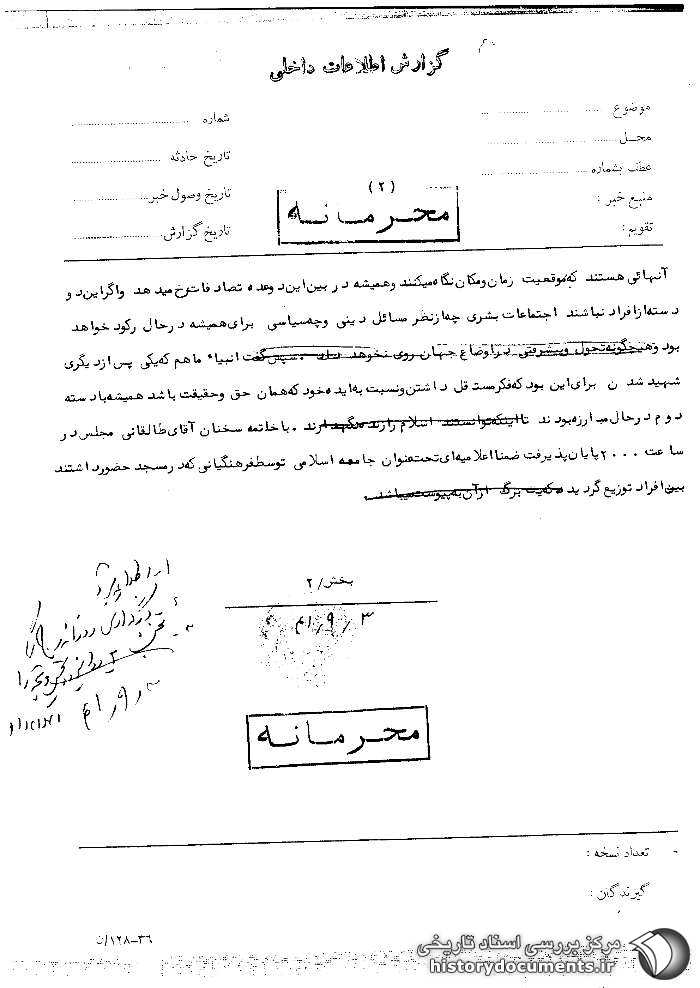 گزارش اطلاعات داخلی
موضوع
شماره
محل
تاریخ حادثه
عطف بشماره
تاریخ وصول خبر
منبع خبر :
(۲)
محرمانه
تقویم :
تاریخ گزارش
آنهائی هستند که موقعیت زمان و مکان نگاه میکنند و همیشه در بین این دو عده تصادفات رخ میدهد واگر این دو
دسته از افراد نباشند اجتماعات بشری چه از نظر مسائل دینی وچه سیاسی برای همیشه در حال رکود خواهد
بود وهیچگونه تحول و پیشرفتی در اوضاع جهان روی نخوهد داد . سپس گفت انبیاء ما هم که یکی پس از دیگری
شهید شدن برای این بود که فکر مستقل داشتن و نسبت به ایده خود که همان حق وحقیقت باشد همیشه با دسته
دوم در حال مبارزه بودند تا اینکه توانستند اسلام را زنده نگهدارند . با خاتمه سخنان آقای طالقانی مجلس در
ساعت ۲۰۰۰ پایان پذیرفت ضمنا اعلامیه ای تحت عنوان جامعه اسلامی توسط فرهنگیانی که در مسجد حضور داشتند
بین افراد توزیع گردید که یک برگ از آن به پیوست میباشد .
بخش / ۲
۳ / ۹ / ۴۱
محرمانه
تعداد نسخه :
گیرندگان :
۳۶-۱۲۸/ت
مرکز بررسی اسناد تاریخی
historydocuments.ir